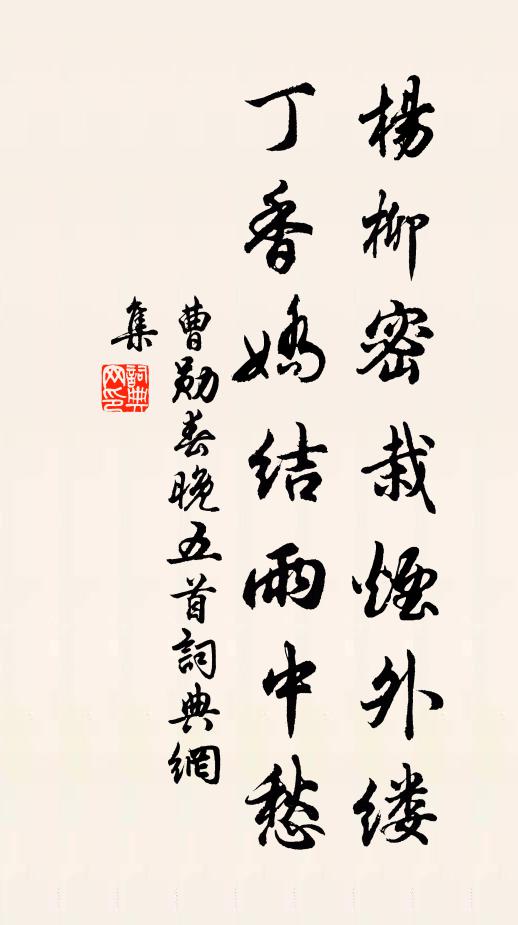 楊柳密栽煙外缕
丁香嬌结雨中愁
曹勛春晚五首詞典網
集
詞典
网印